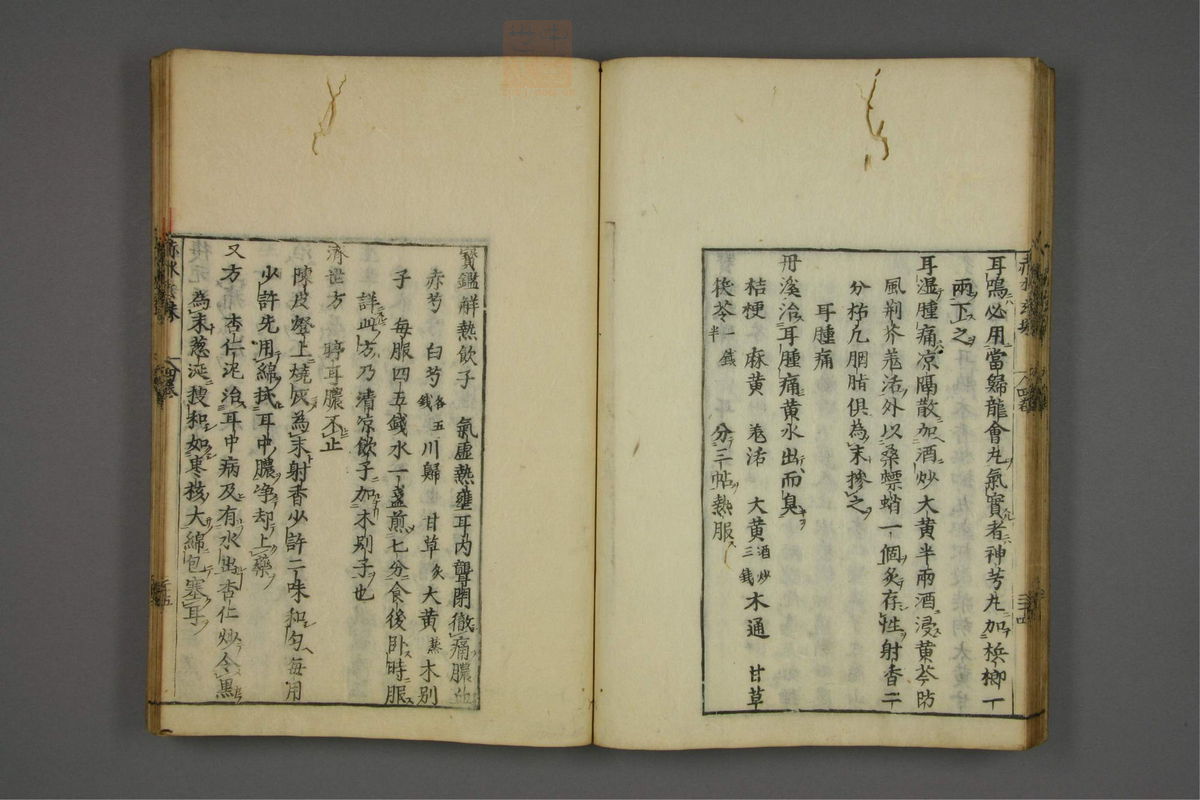 耳鳴必用當歸龍會丸氣實者神芎丸加梹榔一
兩下之
耳湿腫痛凉隔散加酒炒大黄半兩酒浸黄芩防
風荆芥羗活外以桑螵蛸一個炙存性射香二
分枯凡胭脂俱為末摻之
耳腫痛
丹溪治耳腫痛黄水出而臭
桔梗 麻黄 羗活 大黄酒炒三錢木通 甘草
茯苓一錢半 分三帖熱服
寶鑑解熱飲子 氣虛熱壅耳内聾閉徹痛膿血
赤芍 白芍各五錢川歸 甘草炙大黄蒸木别
子 每服四五錢水一盞煎七分食後卧時服
詳此方乃清凉飲子加木别子也
濟世方 聤耳膿不止
陳皮燈上燒灰為末射香少許二味和勻每用
少許先用綿拭耳中膿净却上藥
又方 杏仁泥治耳中病及有水出杏仁炒令黒
為末葱涎搜和如棗核大綿包塞耳